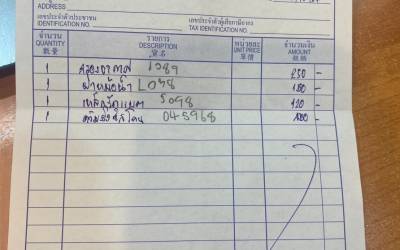 ADDRESS
เลขประจำตัวประชาชน เลขประจำตัวผู้เสียภาษีอากร
IDENTIFICATION NO. TAX IDENTIFICATION NO.
จำนวน รายการ หน่วยละ จำนวนเงิน
QUANTITY DESCRIPTION UNIT PRICE AMOUNT
數量 貨名 單價 銀碼
1 กรองอากาศ 1389 250 -
1 ฝาหม้อน้ำ L038 180 -
1 5098 120 -
1 045968 -